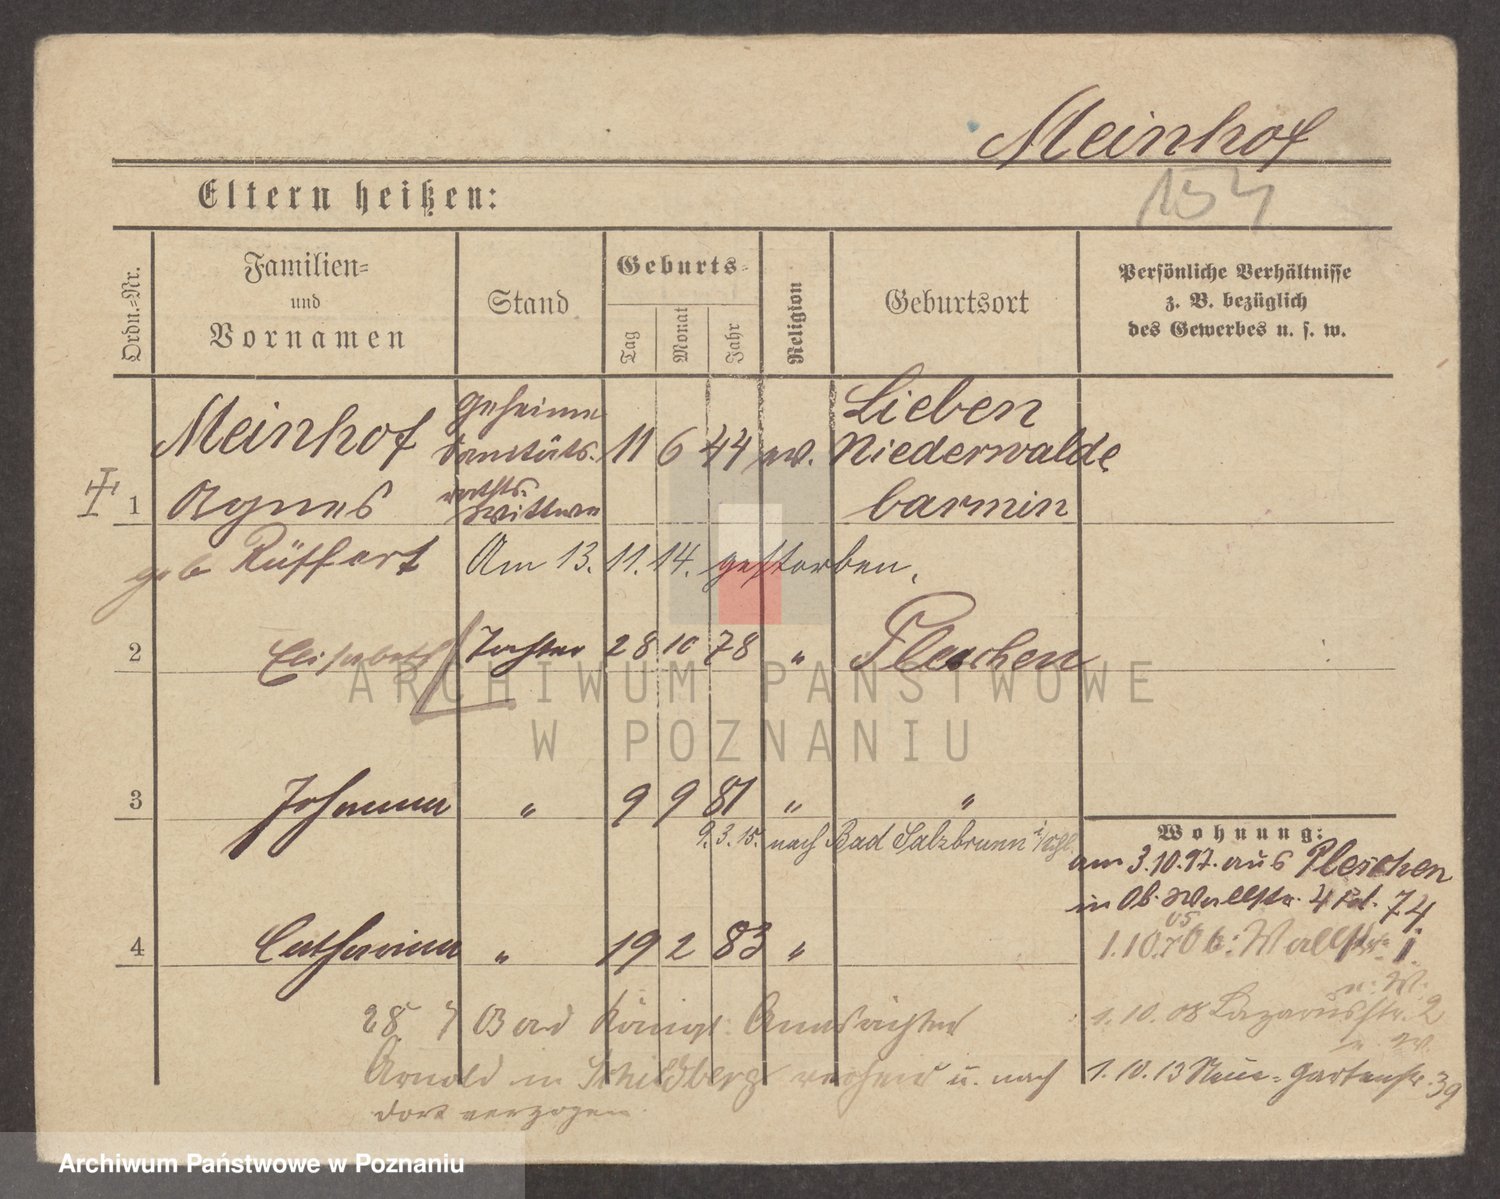 Meinhof
154
Eltern heißen:
Ordn.=Nr.
Familien=
und
Vornamen
Stand
Geburts=
Tag
Monat
Jahr
Religion
Geburtsort
Persönliche Verhältnisse
z. B. bezüglich
des Gewerbes u. s. w.
1
Meinhof
Agnes
geb Rüffert
geheime
Sanitäts.
raths.
Wittwe
11 6 44 ev.
Lieben
Niederwalde
barmin
Am 13. 11. 14. gestorben.
2
Elisabeth Tochter 28 10 78 " Pleschen
3
Johanna " 9 9 81 " "
9. 3. 15. nach Bad Salzbrunn
4
Catharina " 19 2 83 "
28 Königl. Amtsrichter
Arnold in Schildberg u. nach
dort verzogen.
Wohnung:
am 3.10.97. aus Pleschen
in Ob. Wallstr. 4 74
1.10.05 Ob: Wallstr. 1.
n. W.
1. 10. 08 Lazarusstr. 2
n. W.
1. 10. 13 Neue=Gartenstr. 39
ARCHIWUM PAŃSTWOWE
W POZNANIU
Archiwum Państwowe w Poznaniu